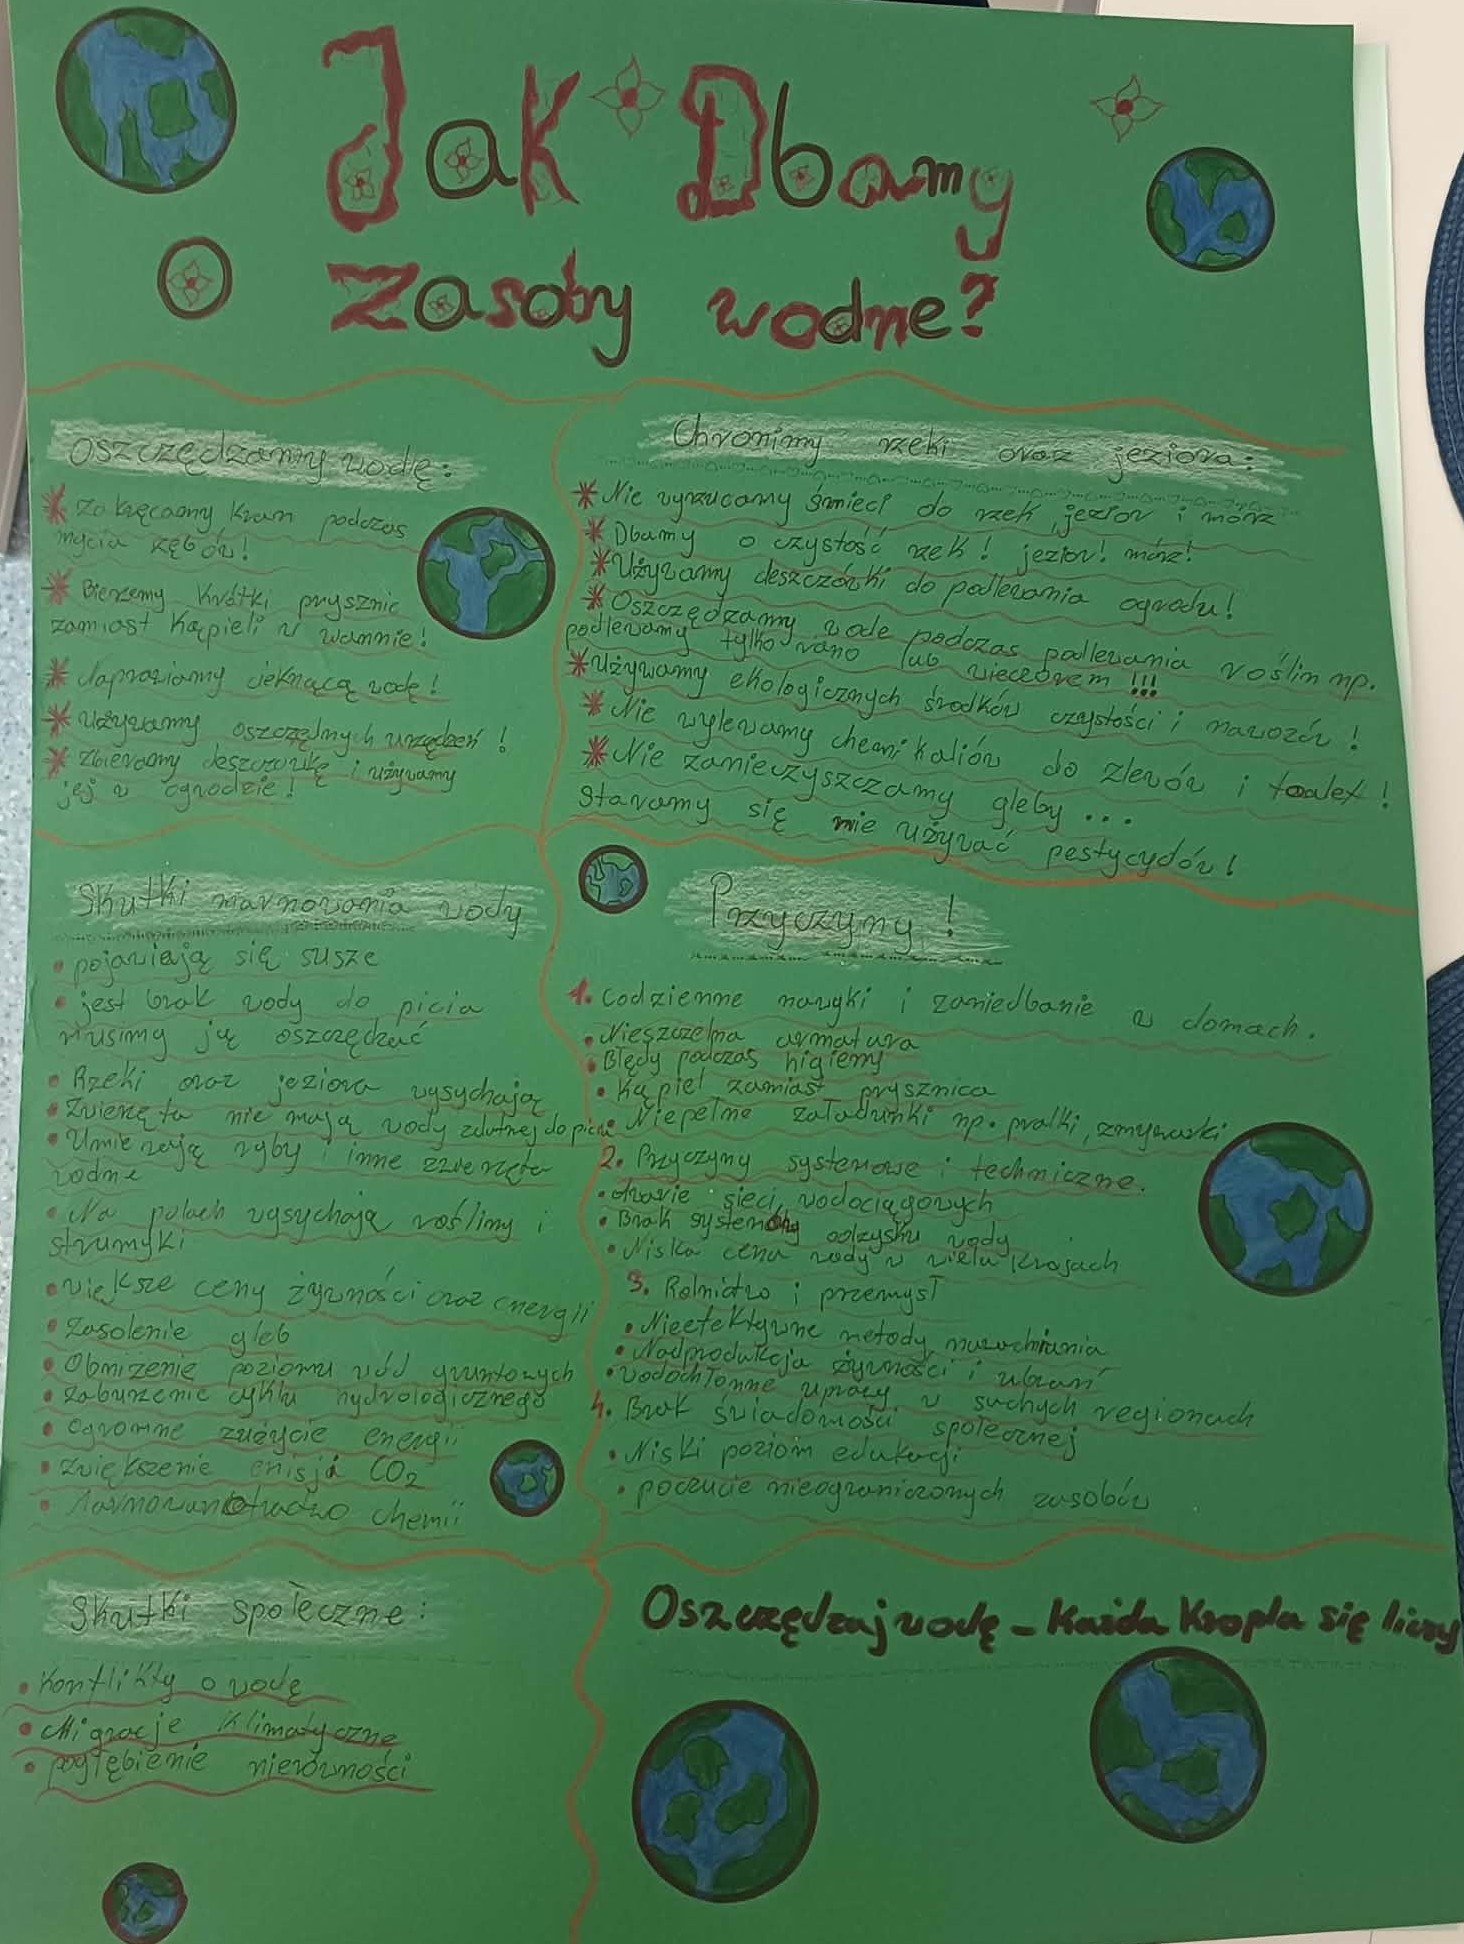 Jak Dbamy
zasoby wodne?
Oszczędzamy wodę:
* Zakręcamy kran podczas
mycia zębów!
* Bierzemy krótki prysznic
zamiast kąpieli w wannie!
* Naprawiamy cieknącą wodę!
* Używamy oszczędnych urządzeń!
* Zbieramy deszczówkę i używamy
jej w ogrodzie!
Chronimy rzeki oraz jeziora:
* Nie wyrzucamy śmieci do rzek, jezior i mórz
* Dbamy o czystość rzek! jezior! mórz!
* Używamy deszczówki do podlewania ogrodu!
* Oszczędzamy wodę podczas podlewania roślin np.
podlewamy tylko rano lub wieczorem!!!
* Używamy ekologicznych środków czystości i nawozów!
* Nie wylewamy chemikaliów do zlewów i toalet!
* Nie zanieczyszczamy gleby...
staramy się nie używać pestycydów!
Skutki marnowania wody
• pojawiają się susze
• jest brak wody do picia
musimy ją oszczędzać
• Rzeki oraz jeziora wysychają
• Zwierzęta nie mają wody zdatnej do picia
• Umierają ryby i inne zwierzęta
wodne
• Na polach wysychają rośliny i
strumyki
• większe ceny żywności oraz energii
• Zasolenie gleb
• Obniżenie poziomu wód gruntowych
• zaburzenie cyklu hydrologicznego
• ogromne zużycie energii
• zwiększenie emisja CO2
• chemii
Przyczyny!
1. Codzienne nawyki i zaniedbanie w domach.
• Nieszczelna armatura
• Błędy podczas higieny
• Kąpiel zamiast prysznica
• Niepełne załadunki np. pralki, zmywarki
2. Przyczyny systemowe i techniczne.
• Awarie sieci wodociągowych
• Brak systemów odzysku wody
• Niska cena wody w wielu krajach
3. Rolnictwo i przemysł
• Nieefektywne metody nawadniania
• Nadprodukcja żywności i ubrań
• Wodochłonne uprawy w suchych regionach
4. Brak świadomości społecznej
• Niski poziom edukacji
• poczucie nieograniczonych zasobów
Skutki społeczne:
• Konflikty o wodę
• Migracje klimatyczne
• pogłębienie nierówności
Oszczędzaj wodę - Każda Kropla się liczy